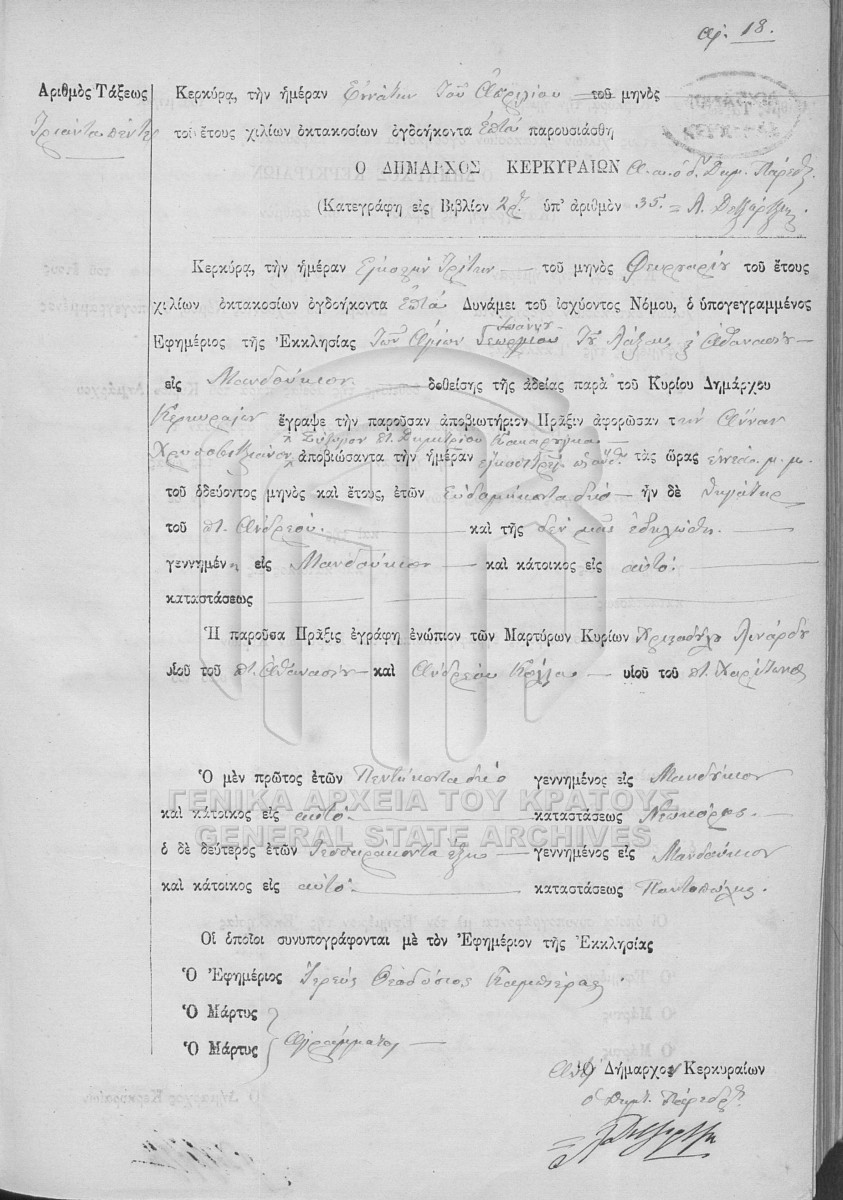 αρ. 18.
Ἀριθμὸς Τάξεως
Τριάντα πέντε
Κερκύρᾳ, τὴν ἡμέραν Ἐννάτην τοῦ Ἀπριλίου τοῦ μηνὸς
τοῦ ἔτους χιλίων ὀκτακοσίων ὀγδοήκοντα Ἑπτὰ παρουσιάσθη
Ο ΔΗΜΑΡΧΟΣ ΚΕΡΚΥΡΑΙΩΝ Δημ. Πάρεδρ.
(Κατεγράφη εἰς Βιβλίον 2ον ὑπ' ἀριθμὸν 35.
Κερκύρᾳ, τὴν ἡμέραν Εἰκοστὴν Τρίτην τοῦ μηνὸς Φεβρουαρίου τοῦ ἔτους
χιλίων ὀκτακοσίων ὀγδοήκοντα Ἑπτὰ Δυνάμει τοῦ ἰσχύοντος Νόμου, ὁ ὑπογεγραμμένος
Ἐφημέριος τῆς Ἐκκλησίας Τῶν Ἁγίων Γεωργίου Ἰωάννου τοῦ Λάζαρ. & Ἀθανασίου
εἰς Μανδούκιον δοθείσης τῆς ἀδείας παρὰ τοῦ Κυρίου Δημάρχου
Κερκυραίων ἔγραψε τὴν παροῦσαν ἀποβιωτήριον Πρᾶξιν ἀφορῶσαν τὴν Ἄνναν
ἡ Σύζυγον πτ. Δημητρίου
ἀποβιώσαντα τὴν ἡμέραν τὰς ὥρας ἐννέα μ. μ.
τοῦ ὁδεύοντος μηνὸς καὶ ἔτους, ἐτῶν Εὐδομήκοντα δύο ἦν δὲ θηγάτηρ
τοῦ πτ. Ἀνδρέου. καὶ τῆς δὲν μᾶς ἐδηλώθη.
γεννημένη εἰς Μανδούκιον καὶ κάτοικος εἰς αὐτό.
καταστάσεως
Ἡ παροῦσα Πρᾶξις ἐγράφη ἐνώπιον τῶν Μαρτύρων Κυρίων Λινάρδου
υἱοῦ τοῦ πτ. Ἀθανασίου καὶ Ἀνδρέου Κόλλα υἱοῦ τοῦ πτ.
Ὁ μὲν πρῶτος ἐτῶν Πεντήκοντα δύο γεννημένος εἰς Μανδούκιον
καὶ κάτοικος εἰς αὐτό. καταστάσεως Νεωκόρος.
ὁ δὲ δεύτερος ἐτῶν Τεσσαράκοντα ἕξη γεννημένος εἰς Μανδούκιον
καὶ κάτοικος εἰς αὐτό. καταστάσεως Παντοπώλης.
Οἱ ὁποῖοι συνυπογράφονται μὲ τὸν Ἐφημέριον τῆς Ἐκκλησίας
Ὁ Ἐφημέριος Ἱερεὺς Θεοδόσιος
Ὁ Μάρτυς
Ὁ Μάρτυς Ἀγράμματοι
Ὁ Δήμαρχος Κερκυραίων
ὁ Δημτ. Πάρεδρ.
ΓΕΝΙΚΑ ΑΡΧΕΙΑ ΤΟΥ ΚΡΑΤΟΥΣ
GENERAL STATE ARCHIVES